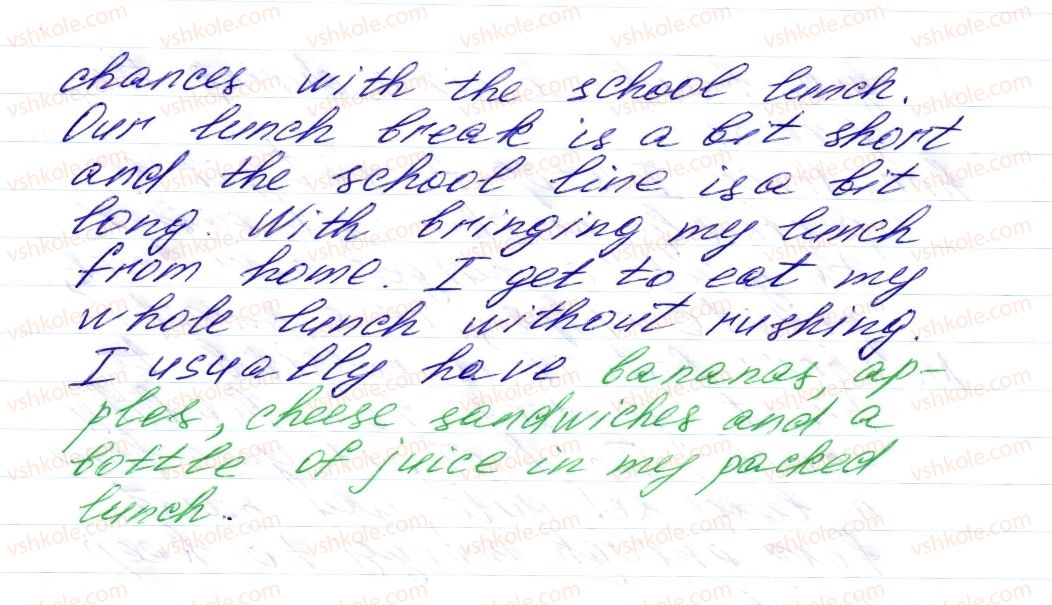 chances with the school lunch.
Our lunch break is a bit short
and the school line is a bit
long. With bringing my lunch
from home. I get to eat my
whole lunch without rushing.
I usually have bananas, ap-
ples, cheese sandwiches and a
bottle of juice in my packed
lunch.
vshkole.com